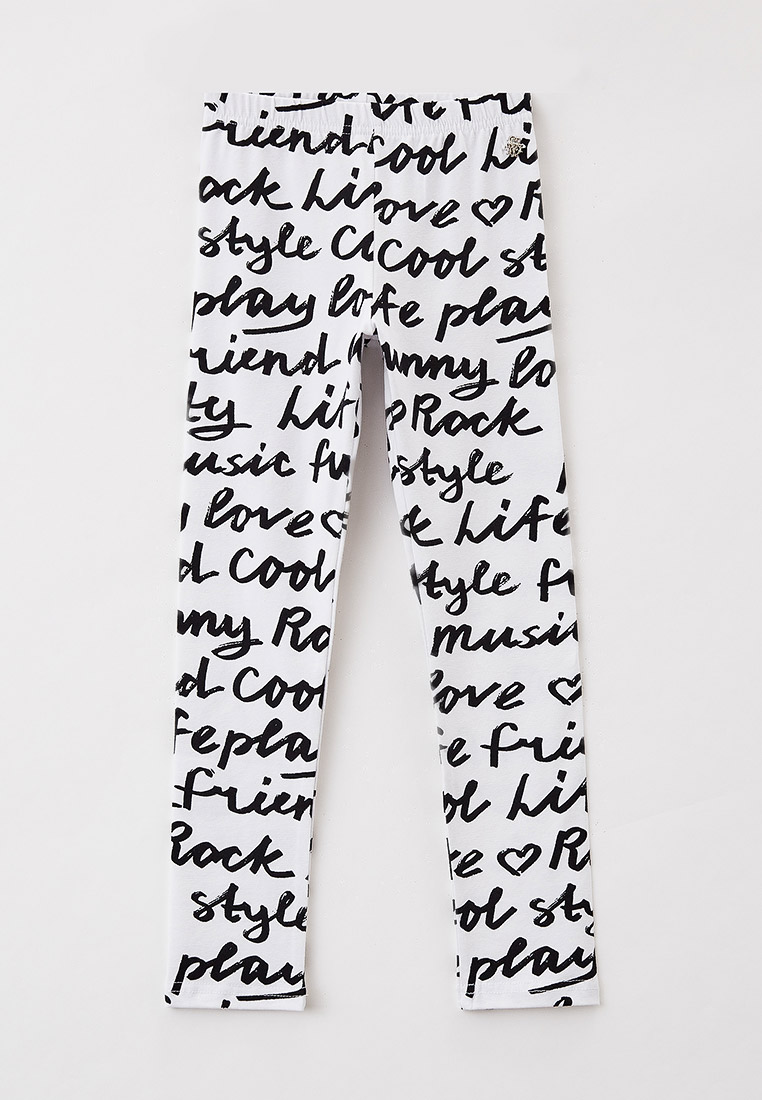 life
friend cool
Rock Life love ♡
style cool
play life play
friend funny
Life Rock
music style
love ♡ Life
cool style
funny music
cool love ♡
life play life
friend cool
Rock ♡
style cool style
play play